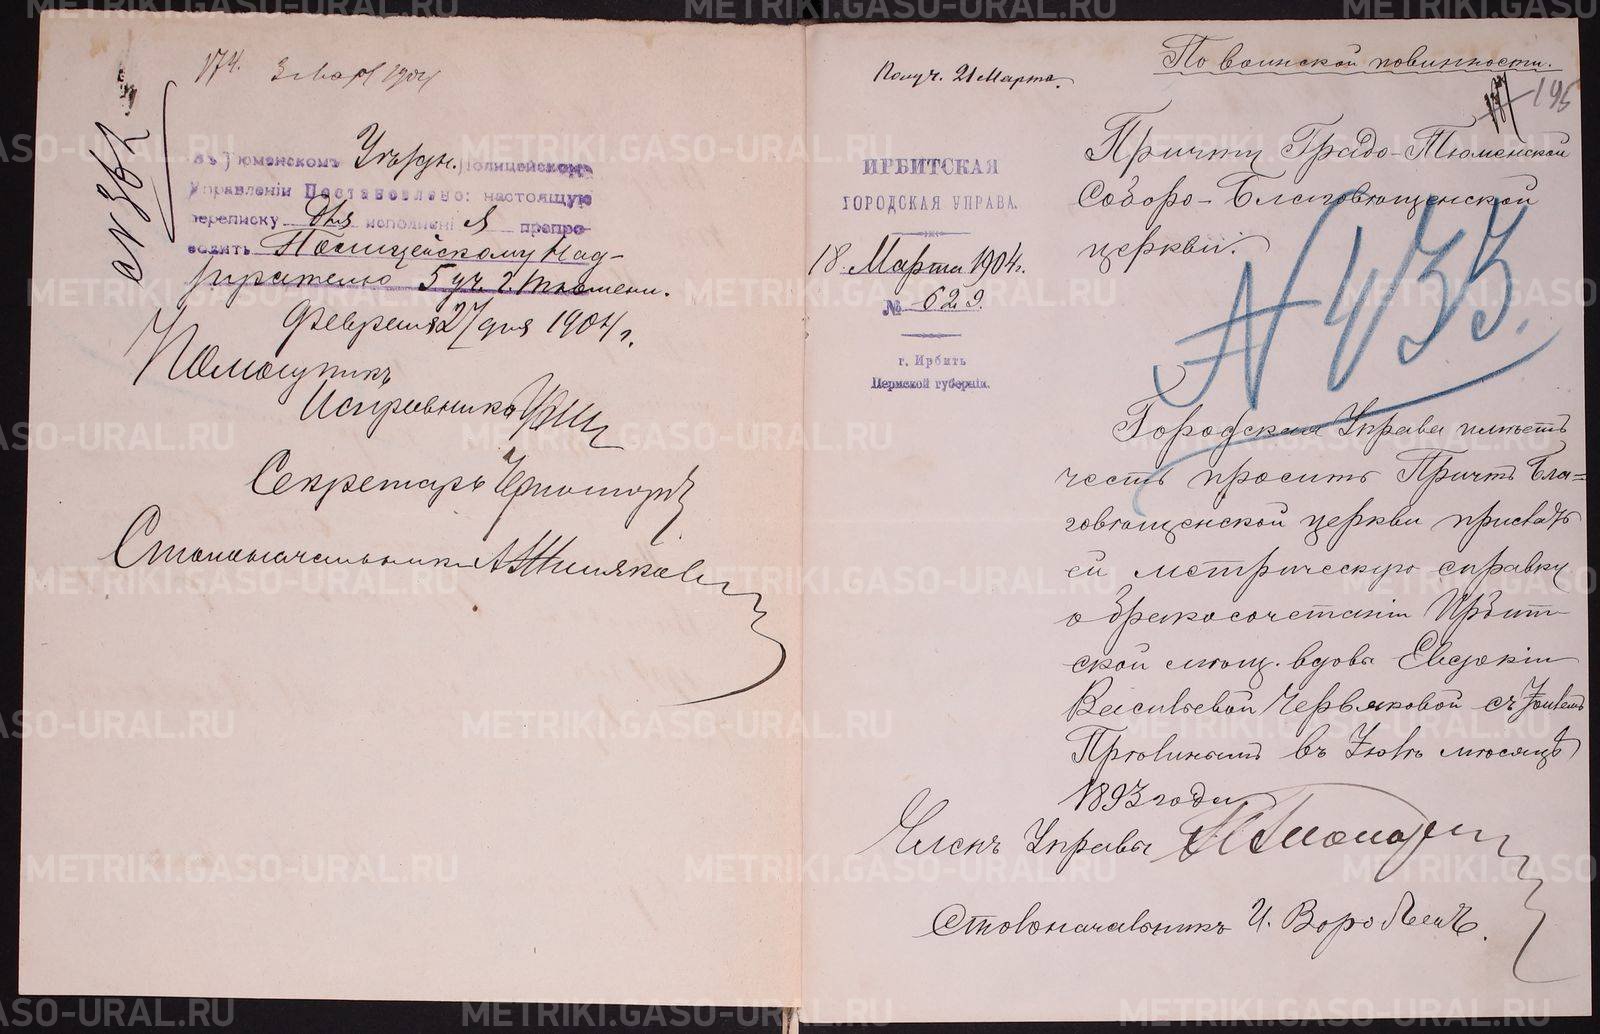 174. 3 Март 1904
№ 382
Въ Тюменскомъ Уѣздн. Полицейскомъ
Управленіи Постановлено: настоящую
переписку для исполненія препро-
водить Полицейскому Над-
зирателю 5 уч. г. Тюмени.
Февраля 27 дня 1904 г.
Помощникъ
Исправника
Секретарь
Столоначальникъ
По воинской повинности.
Получ. 21 Марта.
196
Причту Градо-Тюменской
Соборо-Благовѣщенской
церкви.
ИРБИТСКАЯ
ГОРОДСКАЯ УПРАВА.
18 Марта 1904 г.
№ 629
г. Ирбить
Пермской губерніи.
№ 433.
Городская Управа имѣетъ
честь просить Причтъ Бла-
говѣщенской церкви прислать
ей метрическую справку
о бракосочетаніи Ирбит-
ской мѣщ. вдовы Евдокіи
Васильевой Червяковой съ
въ мѣсяцѣ
1893 года
Членъ Управы
Столоначальникъ И. Воробьевъ.
METRIKI.GASO-URAL.RU